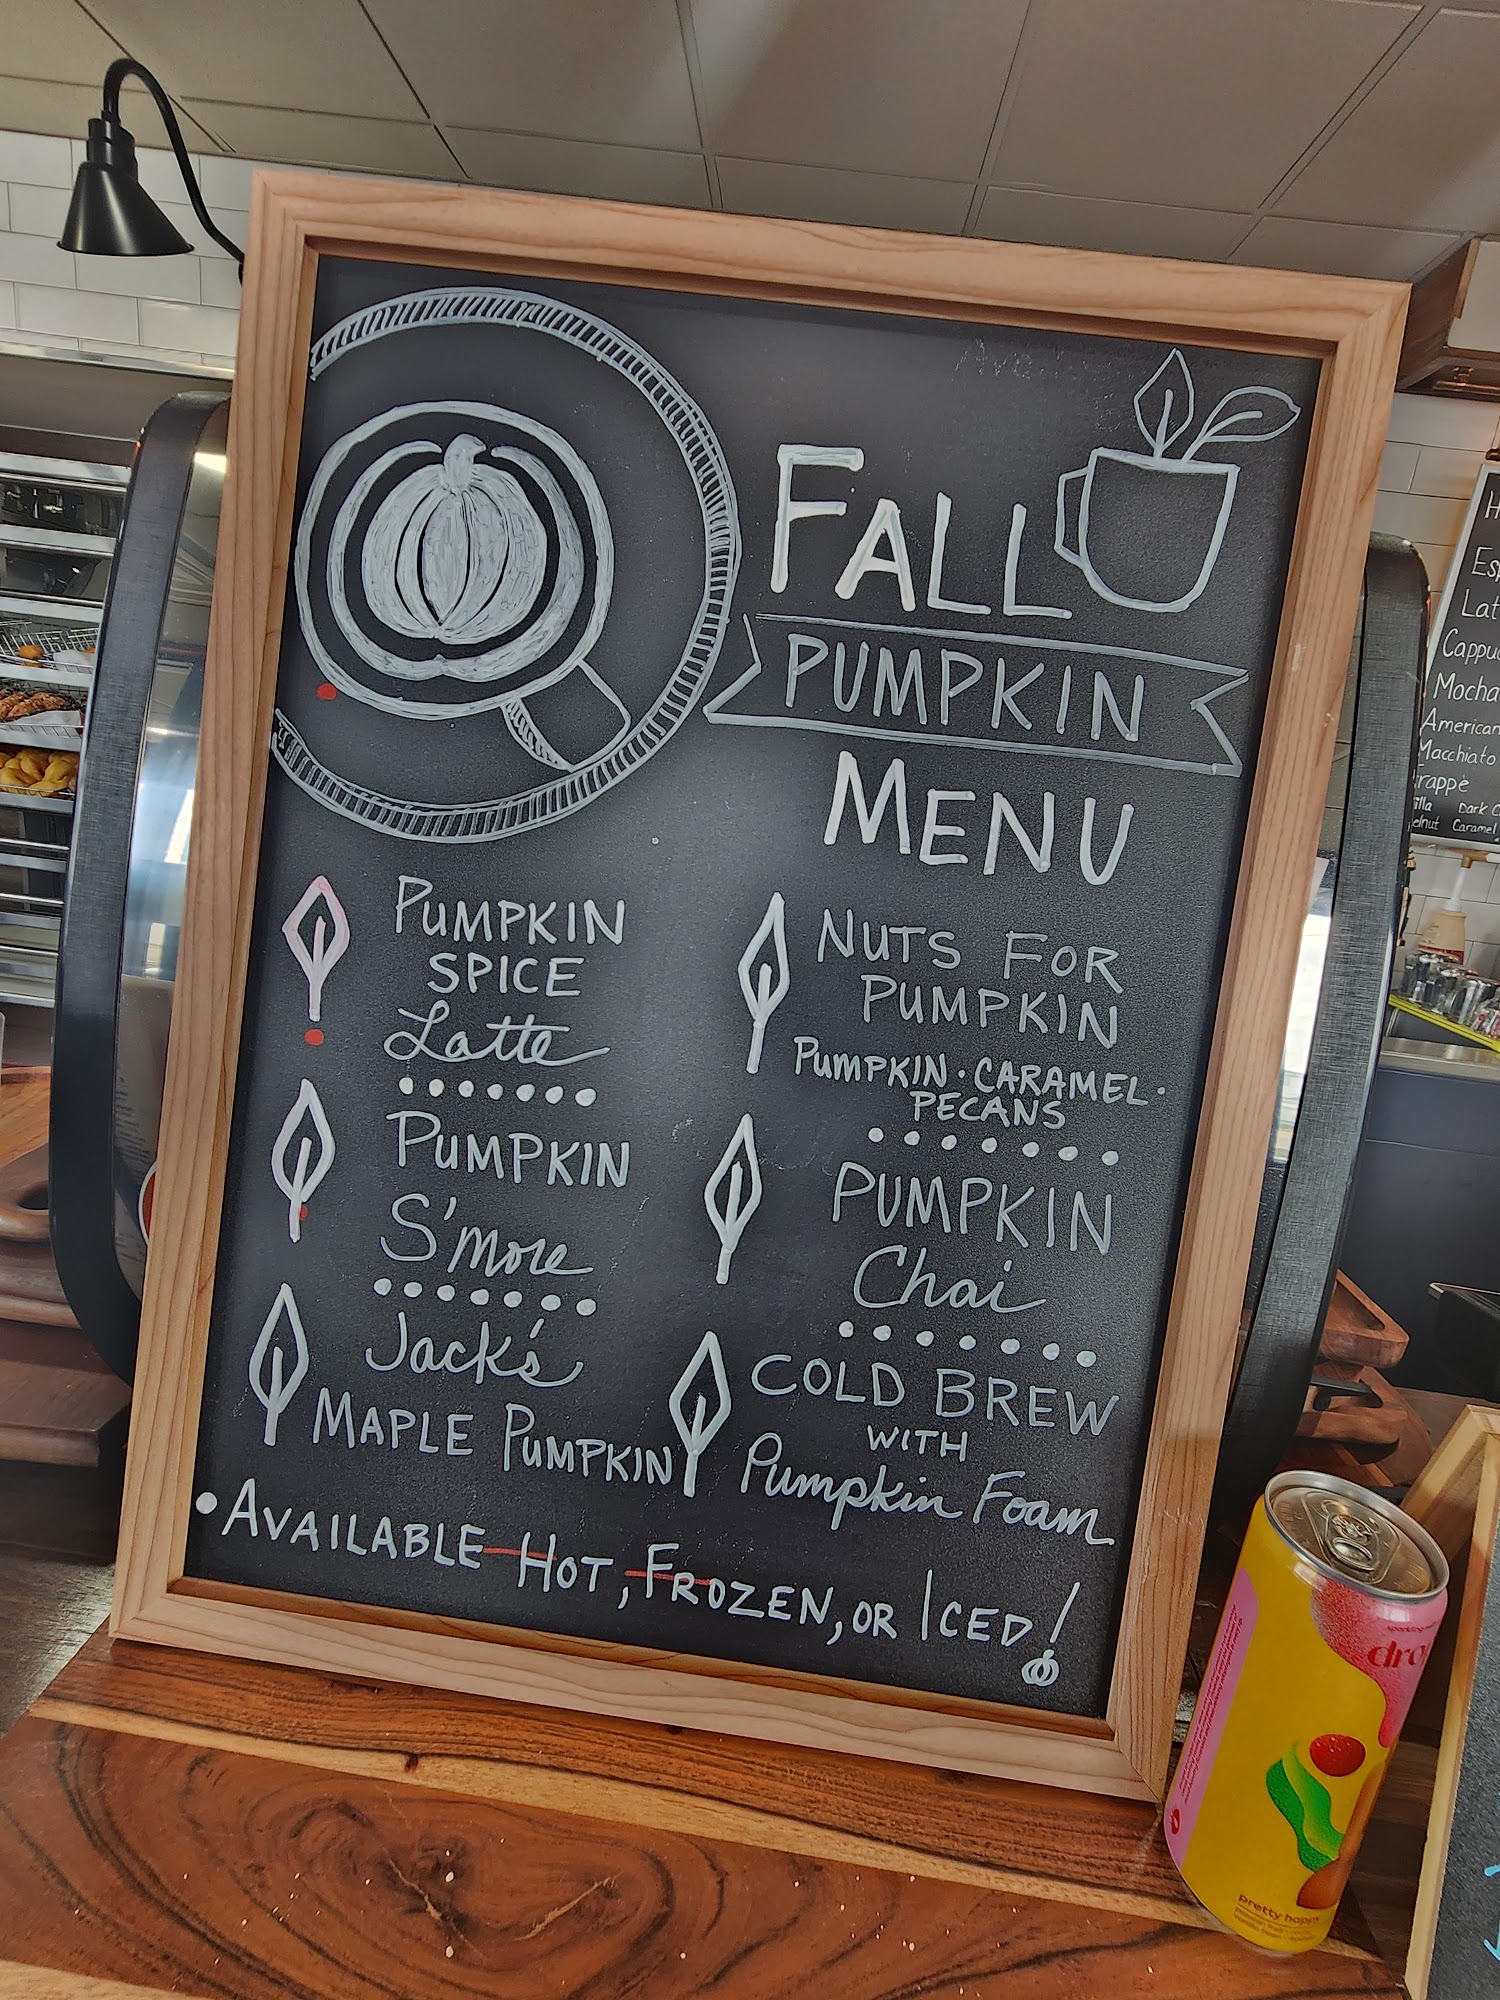 FALL
PUMPKIN
MENU
PUMPKIN
SPICE
Latte
PUMPKIN
S'more
Jack's
MAPLE PUMPKIN
NUTS FOR
PUMPKIN
PUMPKIN · CARAMEL ·
PECANS
PUMPKIN
Chai
COLD BREW
WITH
Pumpkin Foam
• AVAILABLE HOT, FROZEN, OR ICED!
Mocha
Macchiato
Dark
Caramel
sparkling
pretty happy